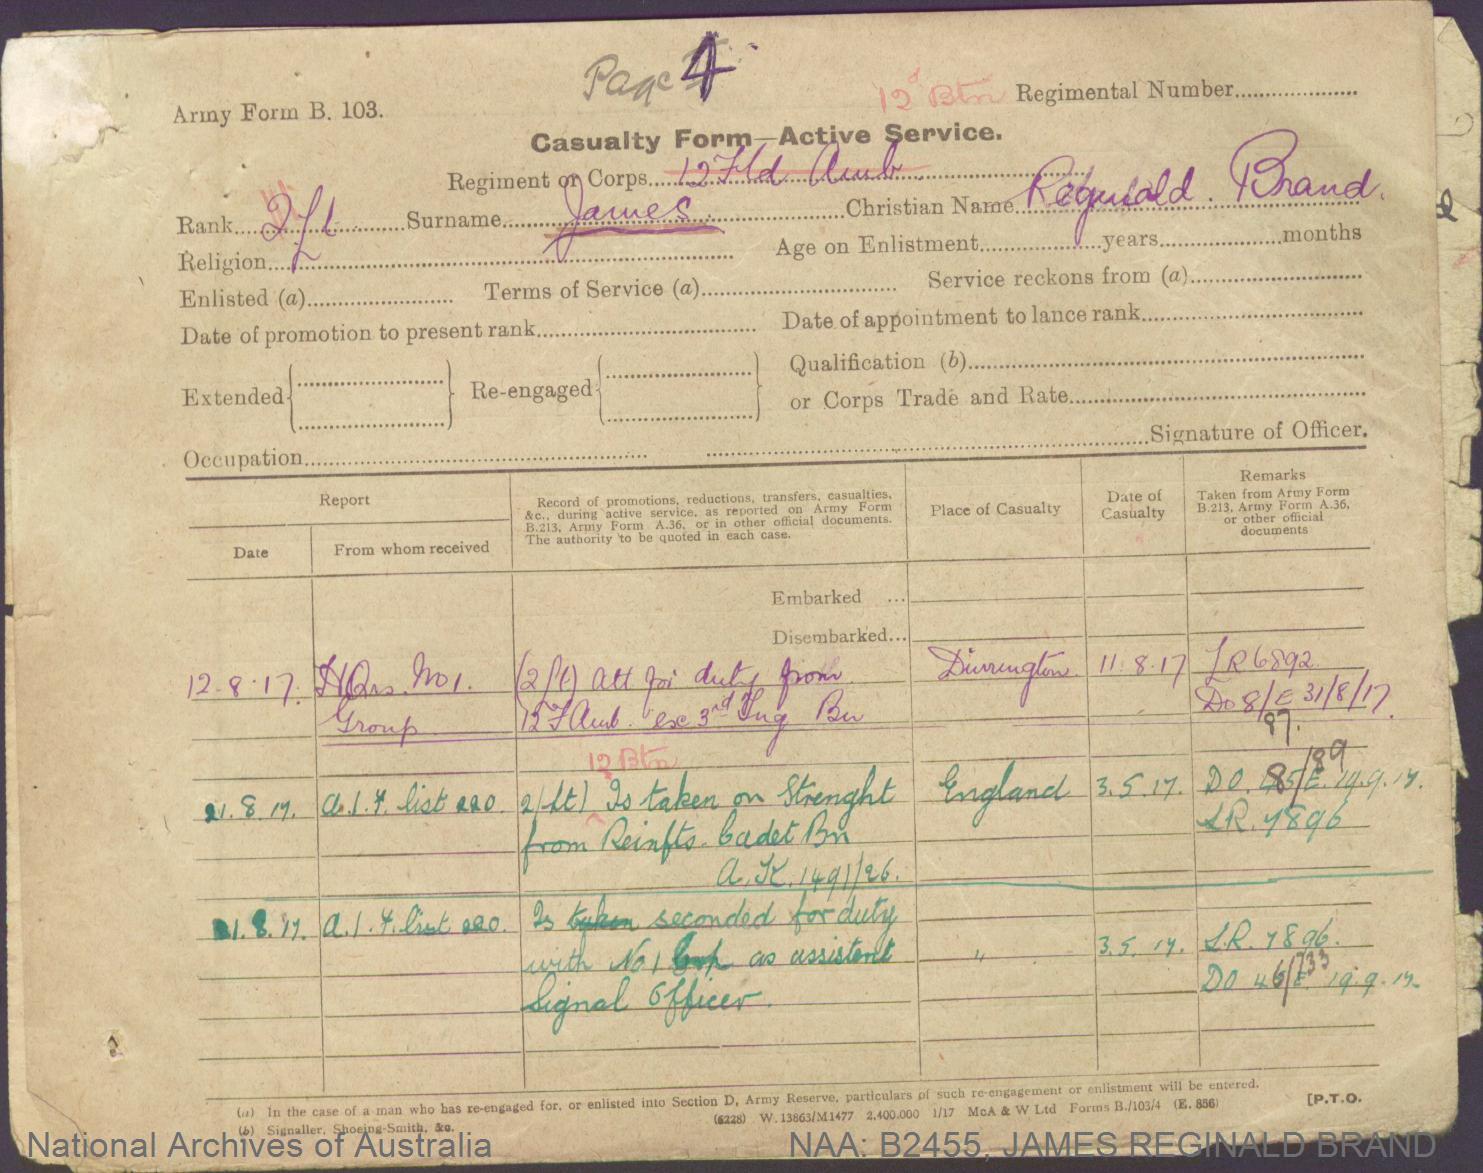 Page 4
Army Form B. 103.
12 Btn Regimental Number
Casualty Form—Active Service.
Regiment or Corps 12 Fld Amb
Rank 2/Lt Surname James Christian Name Reginald Brand.
Religion Age on Enlistment years months
Enlisted (a) Terms of Service (a) Service reckons from (a)
Date of promotion to present rank Date of appointment to lance rank
Extended Re-engaged Qualification (b)
or Corps Trade and Rate
Occupation Signature of Officer.
Report
Date
From whom received
Record of promotions, reductions, transfers, casualties,
&c., during active service, as reported on Army Form
B.213, Army Form A.36, or in other official documents.
The authority to be quoted in each case.
Place of Casualty
Date of
Casualty
Remarks
Taken from Army Form
B.213, Army Form A.36,
or other official
documents
Embarked ...
Disembarked...
12.8.17. HQrs. No 1. (2/Lt) att for duty from Durrington 11.8.17 LR 6892.
Group 12 F Amb. exc 3rd Tng Bn Do 8/E 31/8/17.
87.
12 Btn
21.8.17. A.I.F. list 220. 2/Lt) Is taken on Strenght England 3.5.17. DO. E. 19.9.17.
189
from Reinfts. Cadet Bn LR. 7896
A.K. 1491/26.
21.8.17. A.I.F. list 220. Is taken seconded for duty " 3.5.17. L.R. 7896.
with No 1 as assistent DO 46/E. 19.9.17.
733
Signal Officer.
(a) In the case of a man who has re-engaged for, or enlisted into Section D, Army Reserve, particulars of such re-engagement or enlistment will be entered.
(b) Signaller, Shoeing-Smith, &c.
(6228) W. 13863/M1477 2,400,000 1/17 McA & W Ltd Forms B./103/4 (E. 856)
[P.T.O.
National Archives of Australia
NAA: B2455, JAMES REGINALD BRAND